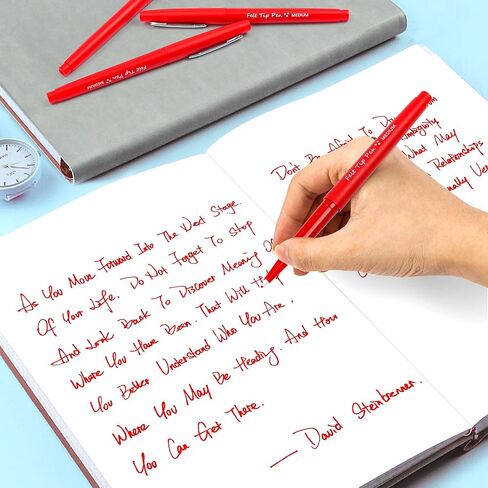 Felt Tip Pen MEDIUM
Felt Tip Pen MEDIUM
Felt Tip Pen MEDIUM
As You Move Forward Into The Next Stage.
Of Your Life. Do Not Forget To Stop
And Look Back To Discover Meaning Of
Where You Have Been. That Will
You Better Understand Who You Are.
Where You May Be Heading. And How
You Can Get There.
— David Steinbrenner.
Don't Be Afraid To
What May
Relationships